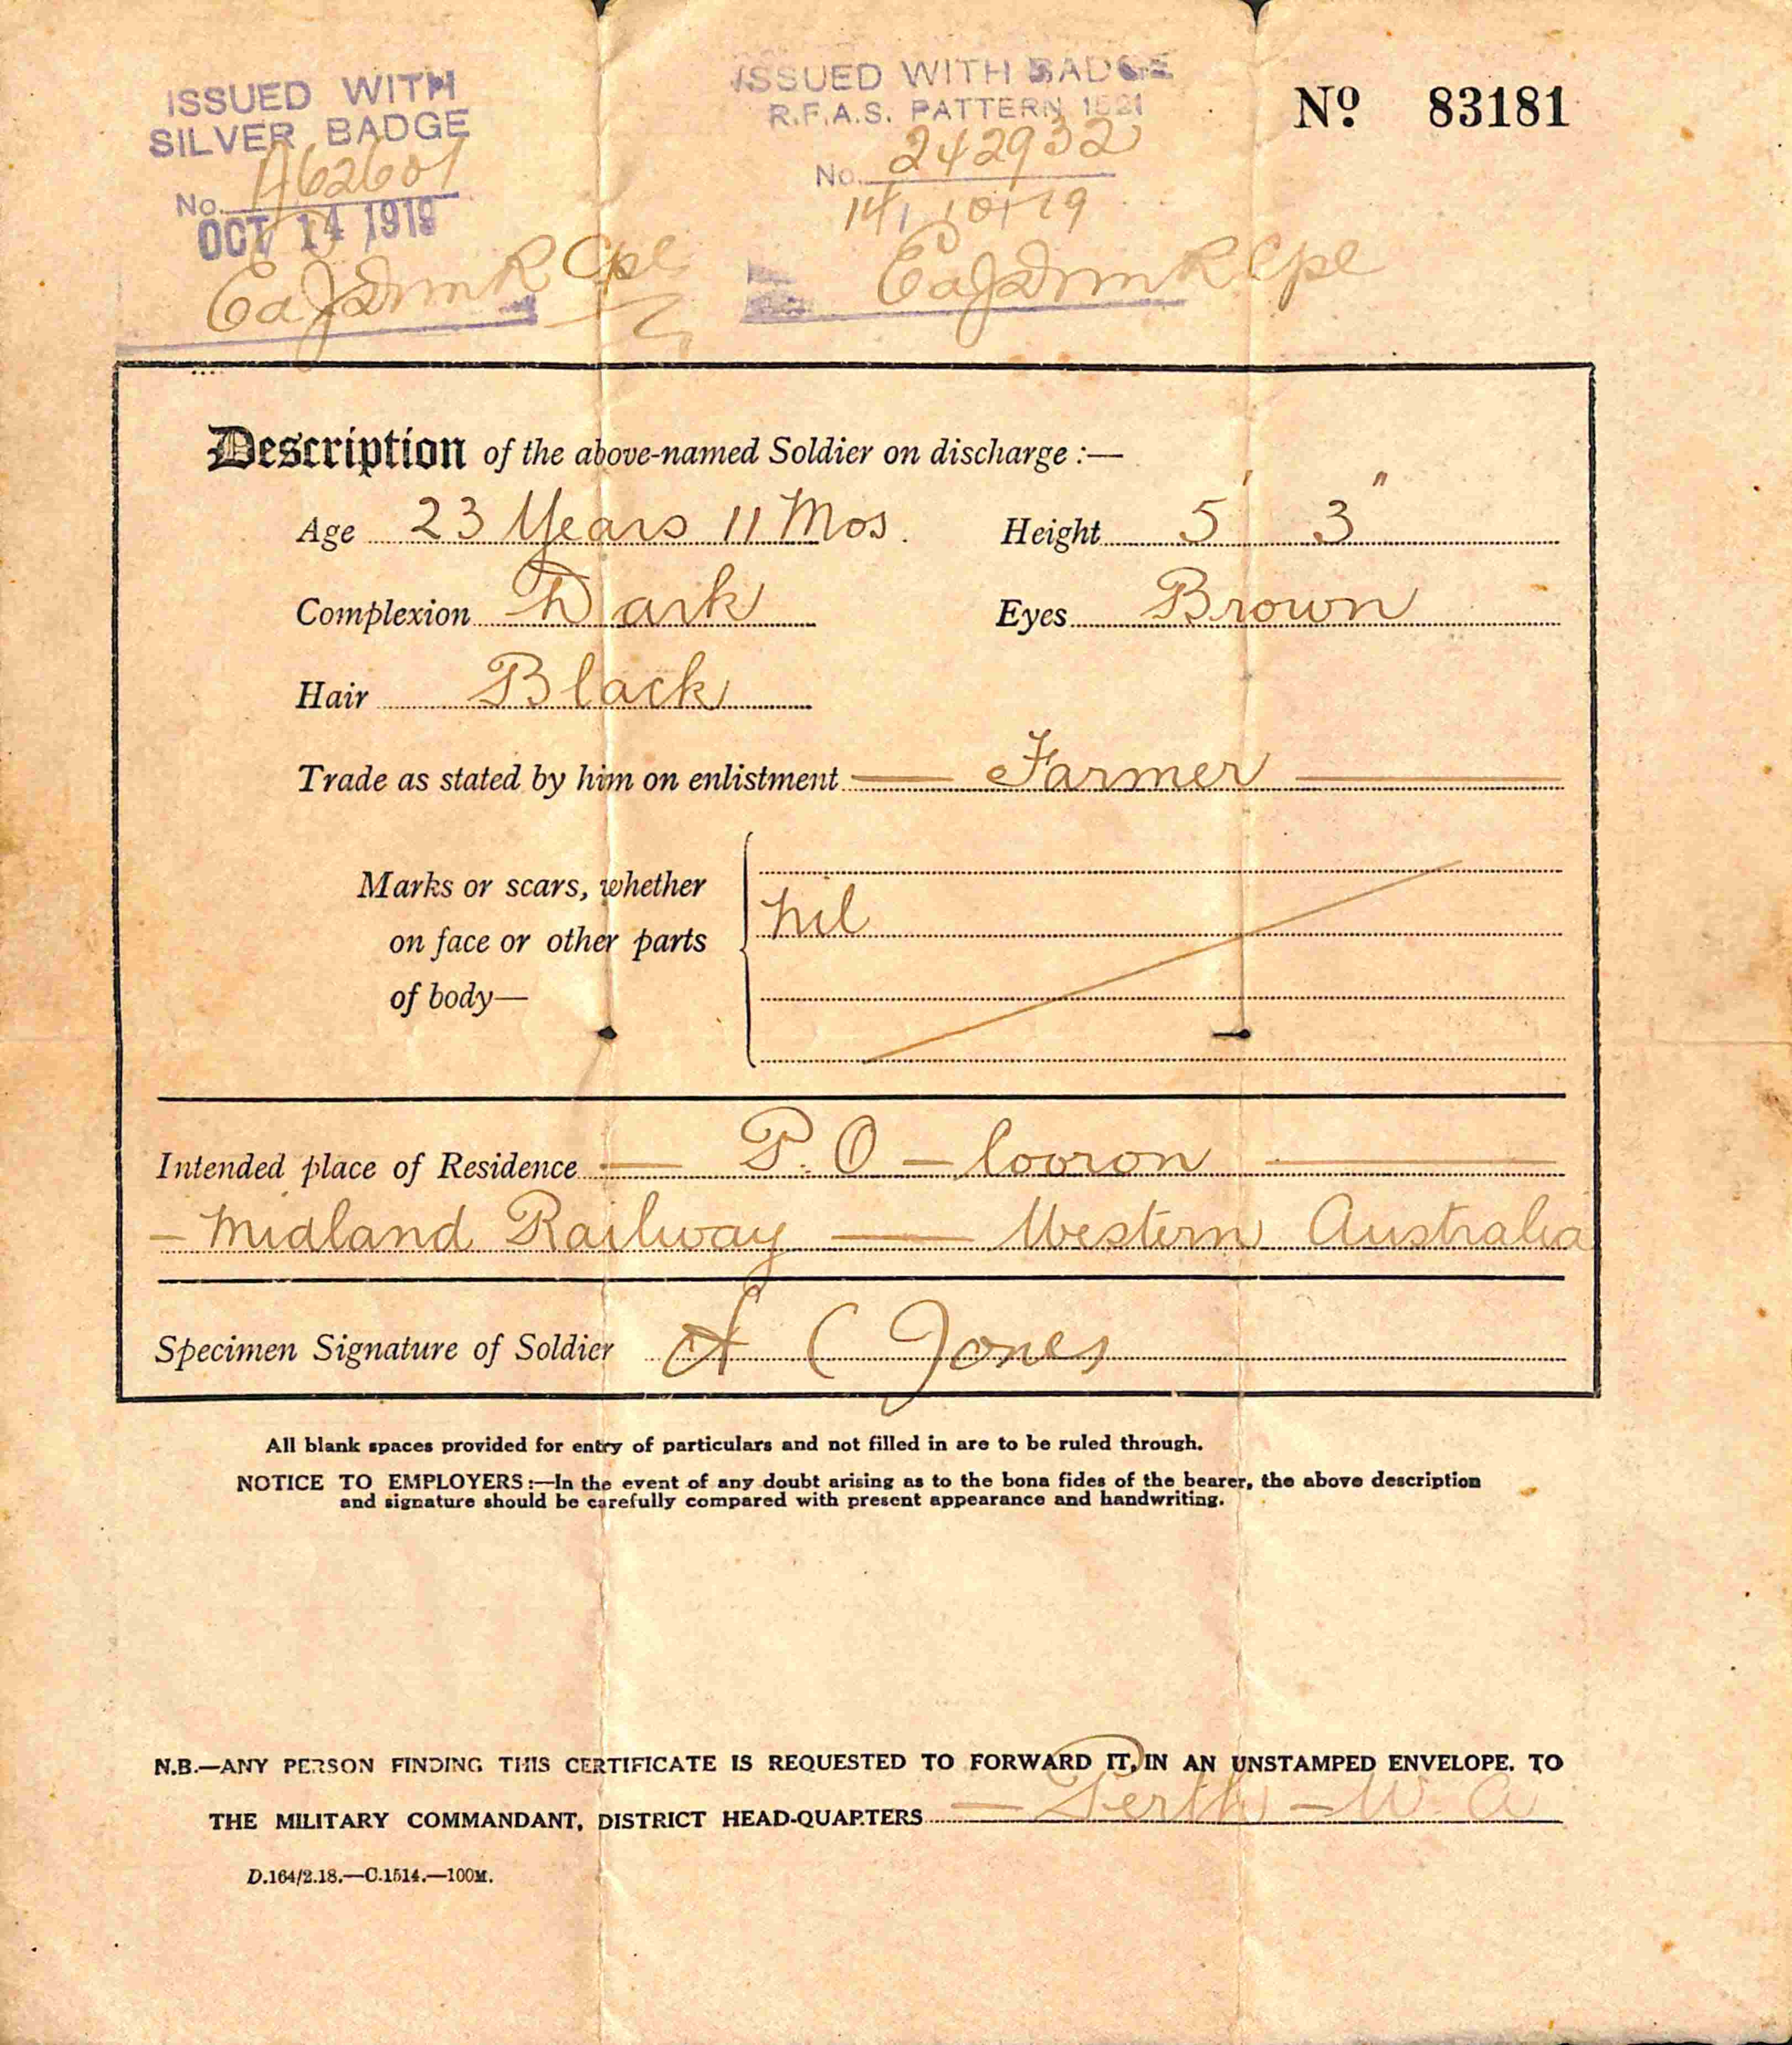 ISSUED WITH
SILVER BADGE
No. A62601
OCT 14 1919
Cpl
ISSUED WITH BADGE
R.F.A.S. PATTERN
No. 242932
14/10/19
Cpl
Nº 83181
Description of the above-named Soldier on discharge :—
Age 23 Years 11 Mos. Height 5' 3"
Complexion Dark Eyes Brown
Hair Black
Trade as stated by him on enlistment — Farmer —
Marks or scars, whether
on face or other parts
of body—
nil
Intended place of Residence — P.O — Cooron —
— Midland Railway — Western Australia
Specimen Signature of Soldier A C Jones
All blank spaces provided for entry of particulars and not filled in are to be ruled through.
NOTICE TO EMPLOYERS :—In the event of any doubt arising as to the bona fides of the bearer, the above description
and signature should be carefully compared with present appearance and handwriting.
N.B.—ANY PERSON FINDING THIS CERTIFICATE IS REQUESTED TO FORWARD IT, IN AN UNSTAMPED ENVELOPE, TO
THE MILITARY COMMANDANT, DISTRICT HEAD-QUARTERS — Perth — W. A
D.164/2.18.—C.1514.—100M.